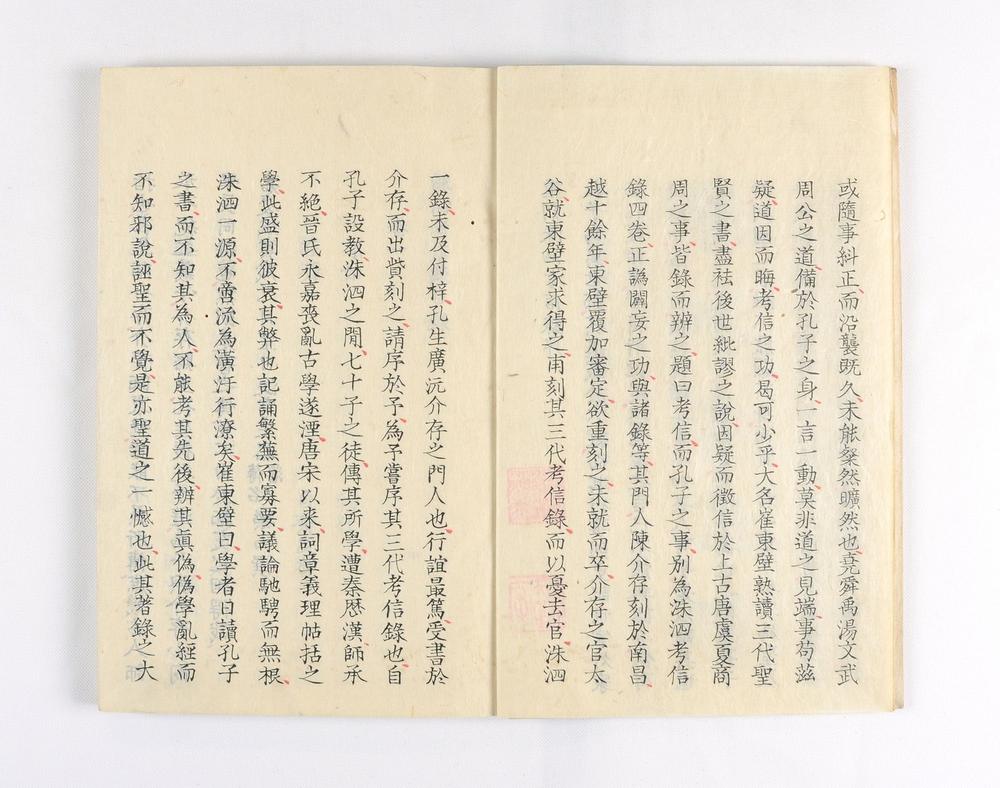 或隨事糾正而沿襲既久未能粲然曠然也堯舜禹湯文武
周公之道備於孔子之身一言一動莫非道之見端事苟滋
疑道因而晦考信之功曷可少乎大名崔東壁熟讀三代聖
賢之書盡祛後世紕謬之說因疑而徵信於上古唐虞夏商
周之事皆錄而辨之題曰考信而孔子之事別為洙泗考信
錄四卷正譌闢妄之功與諸錄等其門人陳介存刻於南昌
越十餘年東壁覆加審定欲重刻之未就而卒介存之官太
谷就東壁家求得之甫刻其三代考信錄而以憂去官洙泗
一錄未及付梓孔生廣沅介存之門人也行誼最篤受書於
介存而出貲刻之請序於予為予嘗序其三代考信錄也自
孔子設教洙泗之閒七十子之徒傳其所學遭秦歷漢師承
不絶晉氏永嘉喪亂古學遂湮唐宋以来詞章義理帖括之
學此盛則彼衰其弊也記誦繁蕪而寡要議論馳騁而無根
洙泗一源不啻流為潢汙行潦矣崔東壁曰學者日讀孔子
之書而不知其為人不能考其先後辨其真偽偽學亂經而
不知邪說誣聖而不覺是亦聖道之一憾也此其著錄之大